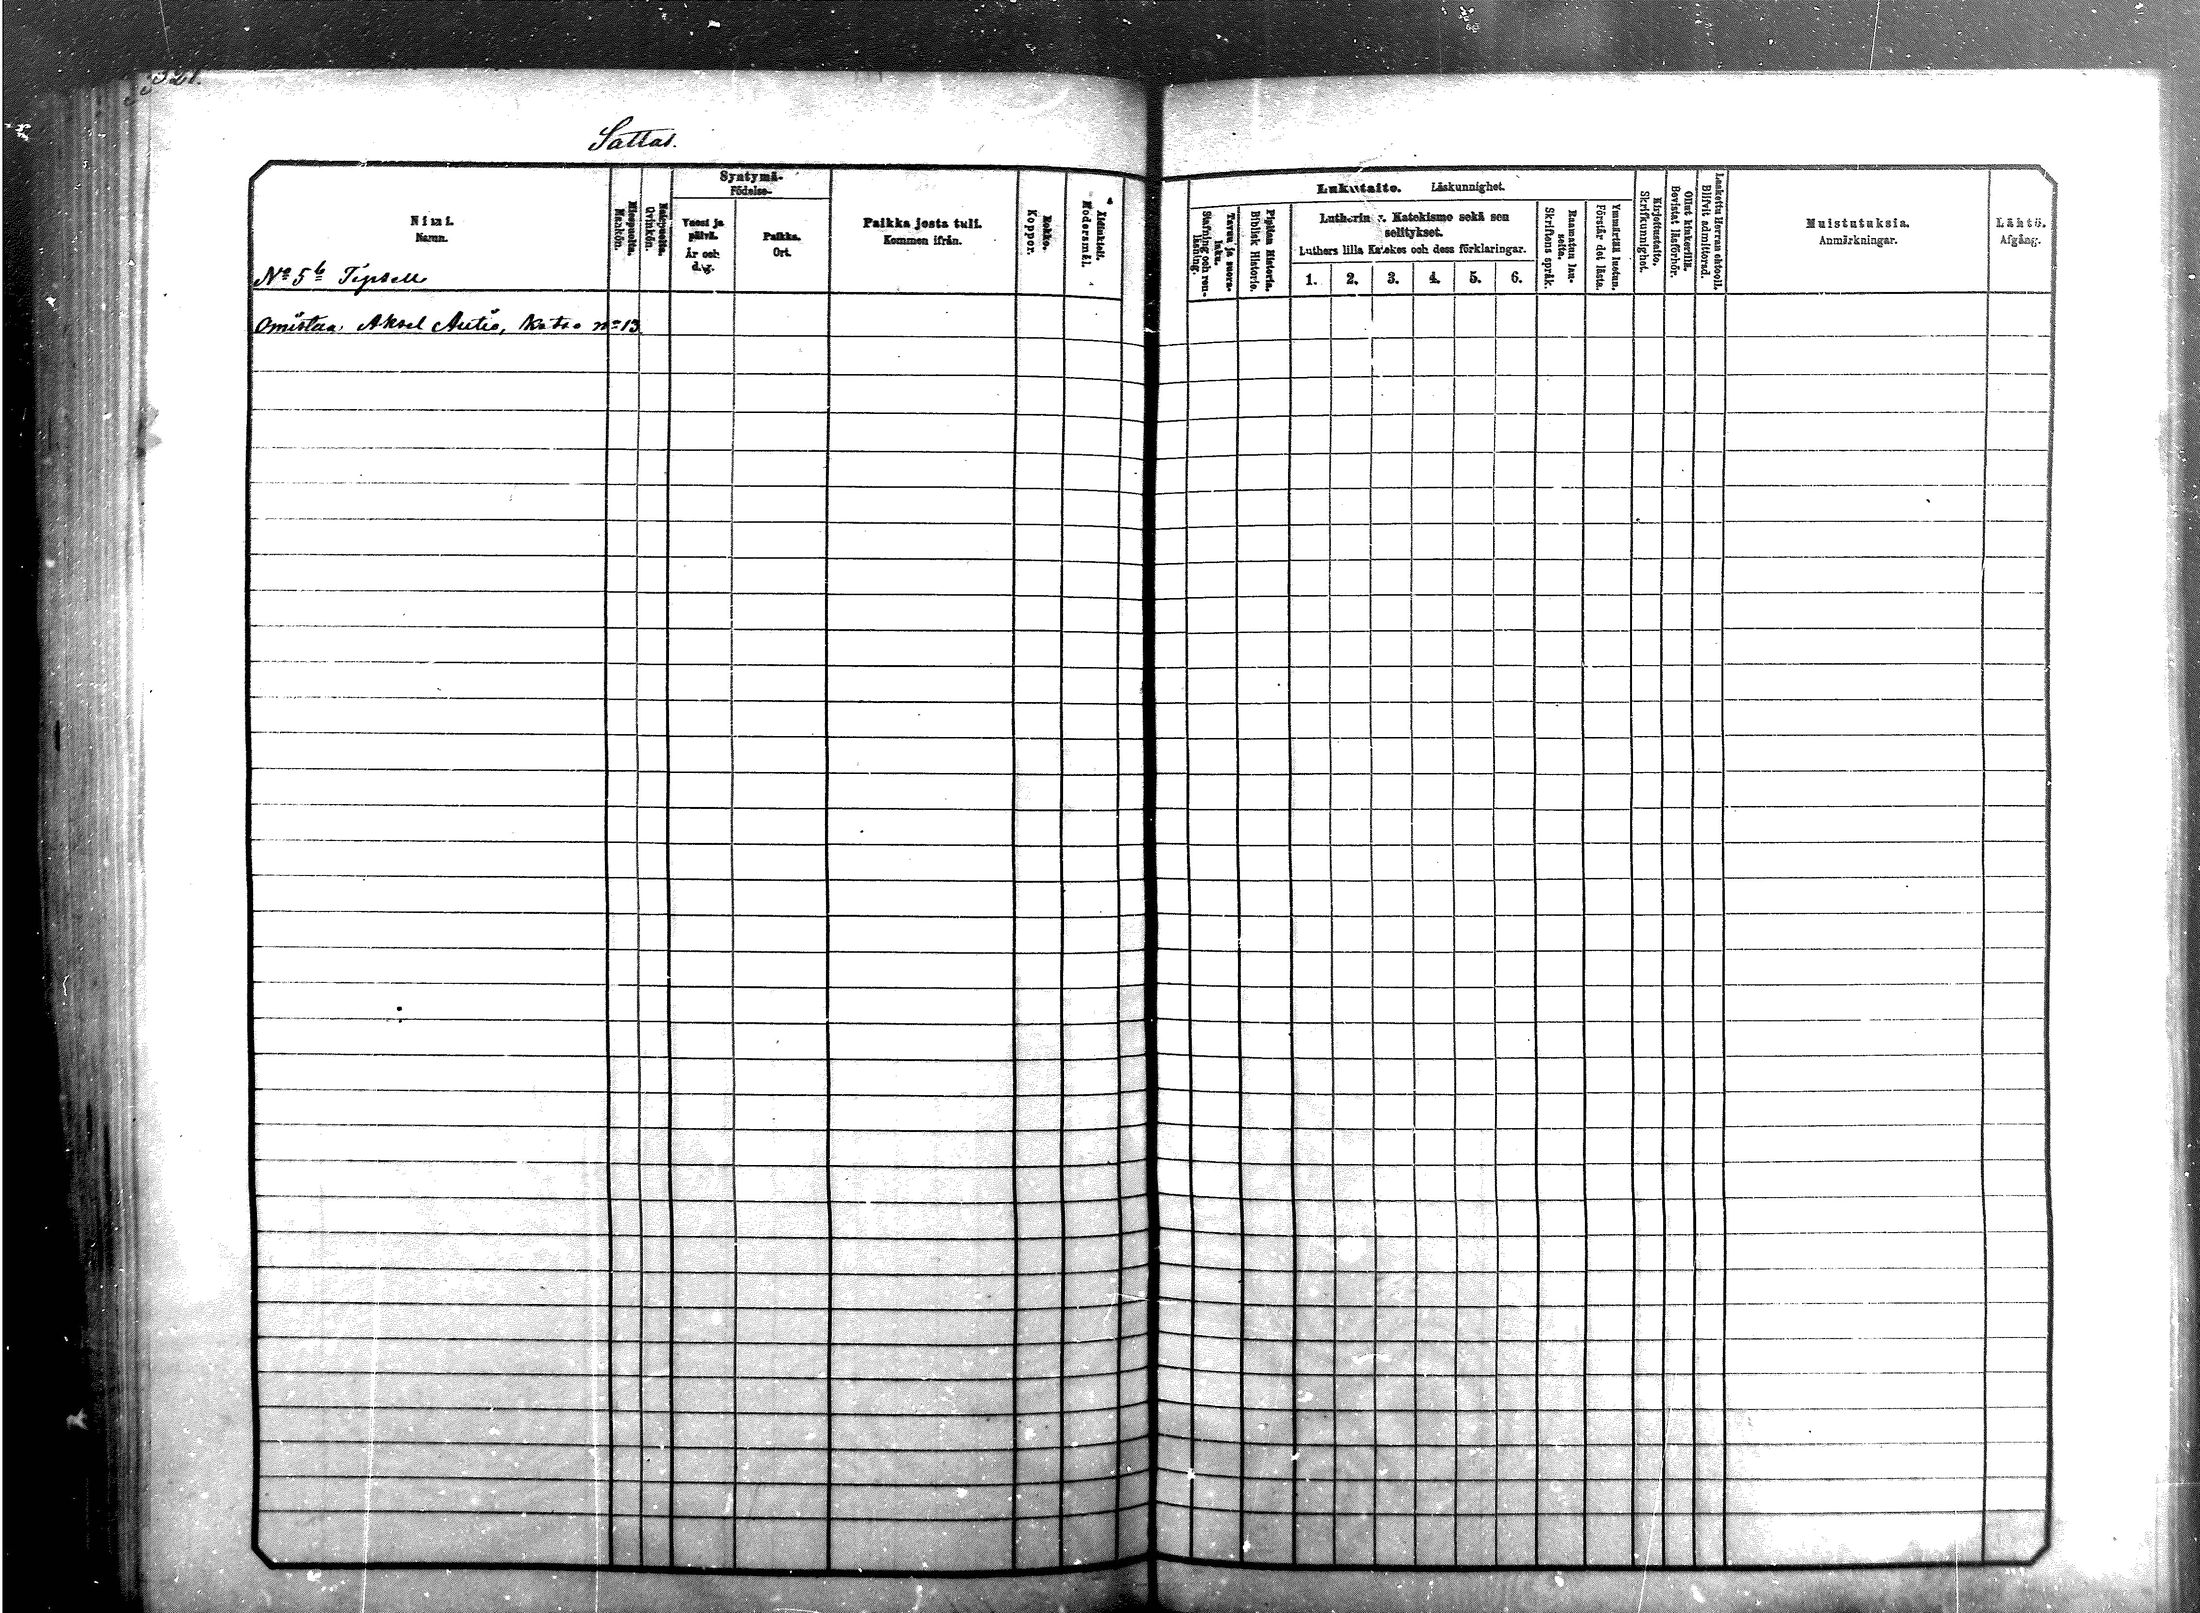 321.
Sattas.
Nimi.
Namn.
Miespuolia.
Mankön.
Naispuolia.
Qvinkön.
Syntymä-
Födelse-
Vuosi ja
päivä.
År och
dag.
Paikka.
Ort.
Paikka josta tuli.
Kommen ifrån.
Rokko.
Koppor.
Äidinkieli.
Modersmål.
Tavau ja suora-
luku.
Stafning och ren-
läsning.
Piplian Historia.
Biblisk Historie.
Lukutaito. Läskunnighet.
Lutherin v. Katekismo sekä sen
selitykset.
Luthers lilla Katekes och dess förklaringar.
1. 2. 3. 4. 5. 6.
Raamatun lau-
seita.
Skriftens språk.
Ymmärtää luetun.
Förstår det lästa.
Kirjoitustaito.
Skrifkunnighet.
Ollut kinkerillä.
Bevistat läsförhör.
Laskettu Herran ehtooll.
Blifvit admitterad.
Muistutuksia.
Anmärkningar.
Lähtö.
Afgång.
No 5b
Omistaa Aksel Autio, Katso no 13